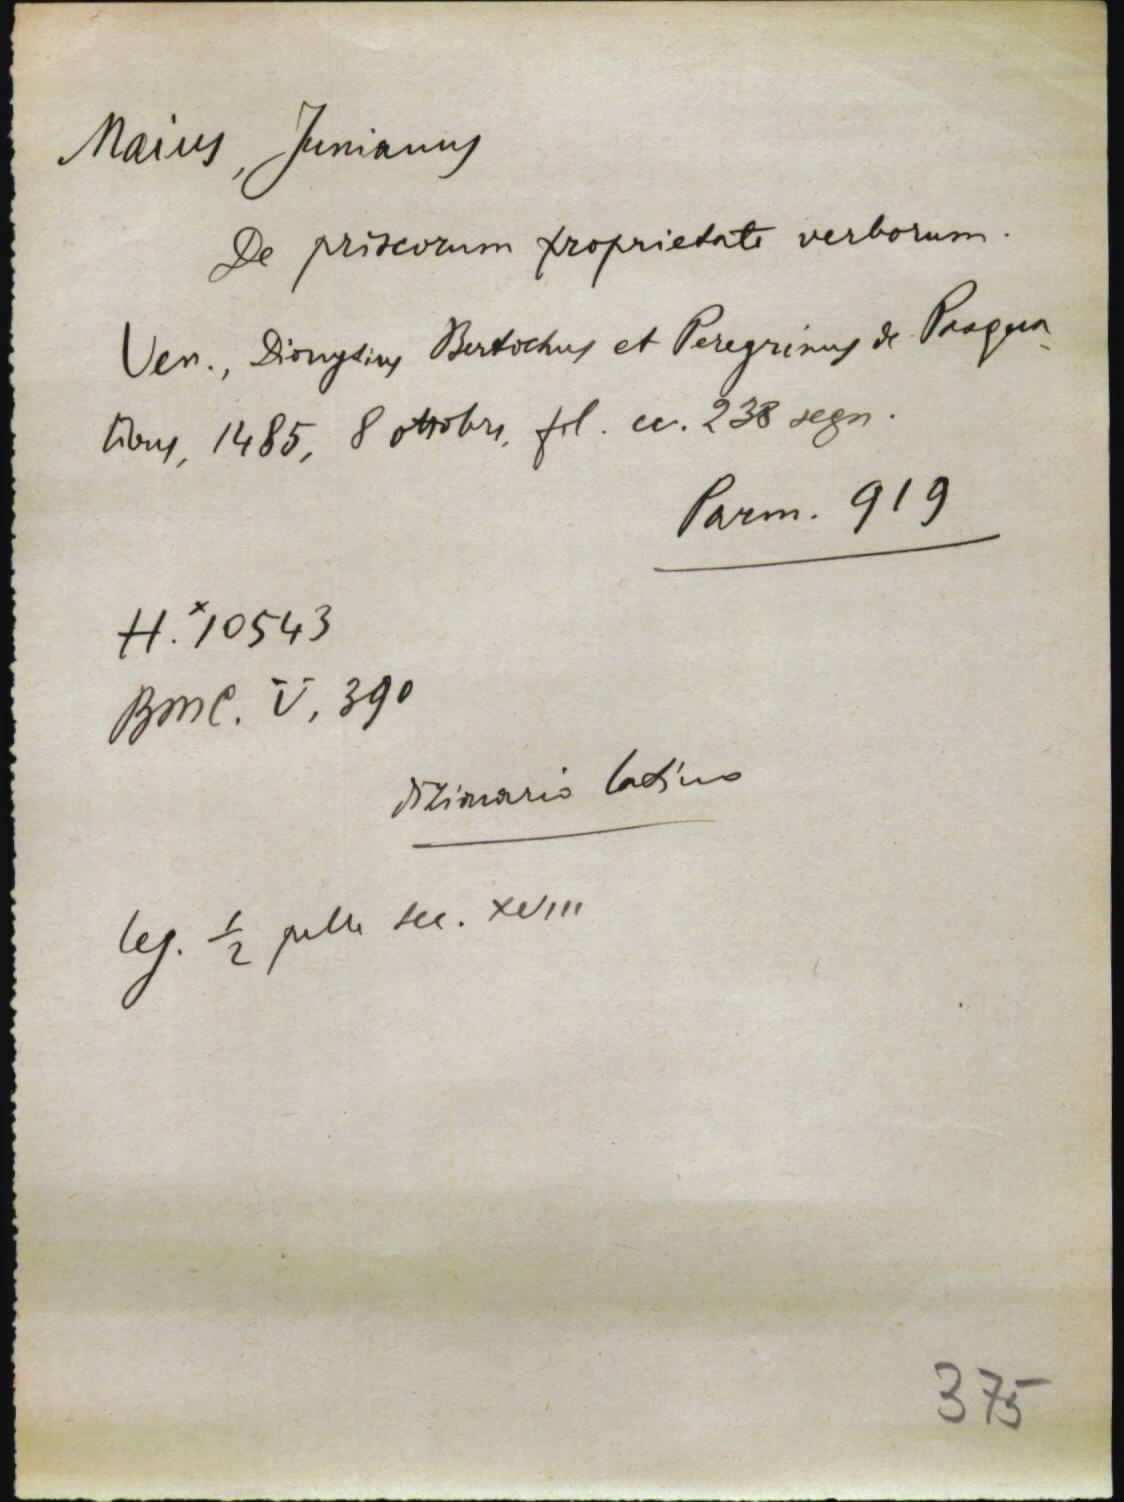 Maius, Junianus
De priscorum proprietate verborum.
Ven., Dionysius Bertochus et Peregrinus de Pasqua-
libus, 1485, 8 ottobre, fol. cc. 238 segn.
Parm. 919
H.*10543
BMC. V, 390
dizionario latino
leg. 1/2 pelle sec. XVIII
375